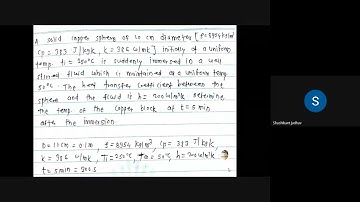 A solid copper sphere of 10 cm diameter [ρ=8954 kg/m³
Cp = 383 J/kgk, k = 386 w/mk] initially at a uniform
temp. ti = 250°C is suddenly immersed in a well
stirred fluid which is maintained at a uniform temp
50°C. The heat transfer coefficient between the
sphere and the fluid is h = 200 w/m²k determine
the temp of the copper block at t = 5 min
after the immersion
D = 10 cm = 0.1m, ρ = 8954 kg/m³, Cp = 383 J/kgk,
k = 386 w/mk, Ti = 250°C, t∞ = 50°C, h = 200 w/m²k
t = 5 min = 300s
S
Shashikant Jadhav